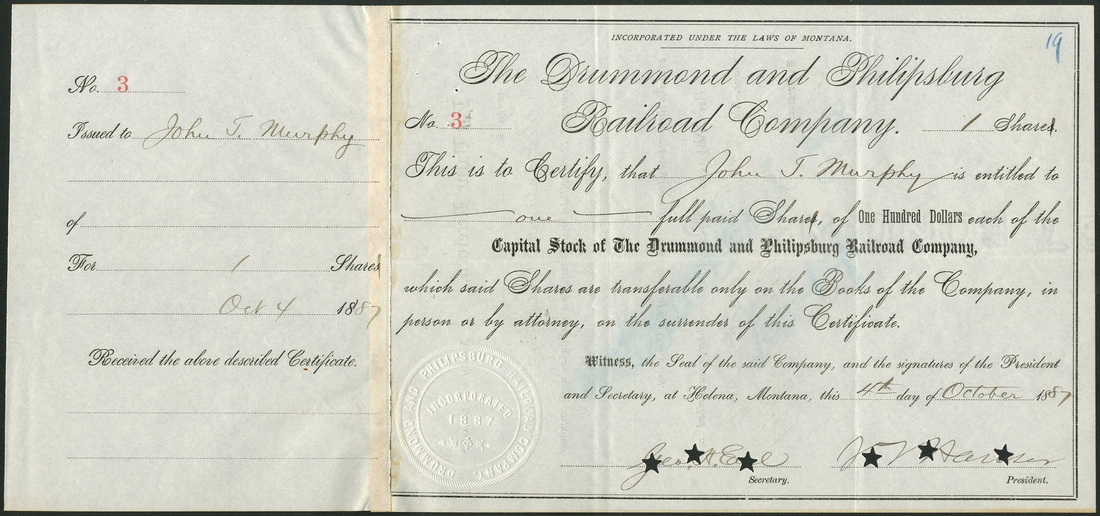 No. 3
Issued to John T. Murphy
of
For 1 Shares
Oct 4 1887
Received the above described Certificate.
19
INCORPORATED UNDER THE LAWS OF MONTANA.
The Drummond and Philipsburg
No. 3 Railroad Company. 1 Shares.
This is to Certify, that John T. Murphy is entitled to
one full paid Shares, of One Hundred Dollars each of the
Capital Stock of The Drummond and Philipsburg Railroad Company,
which said Shares are transferable only on the Books of the Company, in
person or by attorney, on the surrender of this Certificate.
Witness, the Seal of the said Company, and the signatures of the President
and Secretary, at Helena, Montana, this 4th day of October 1887
DRUMMOND AND PHILIPSBURG RAILROAD COMPANY.
INCORPORATED
1887
Secretary.
President.